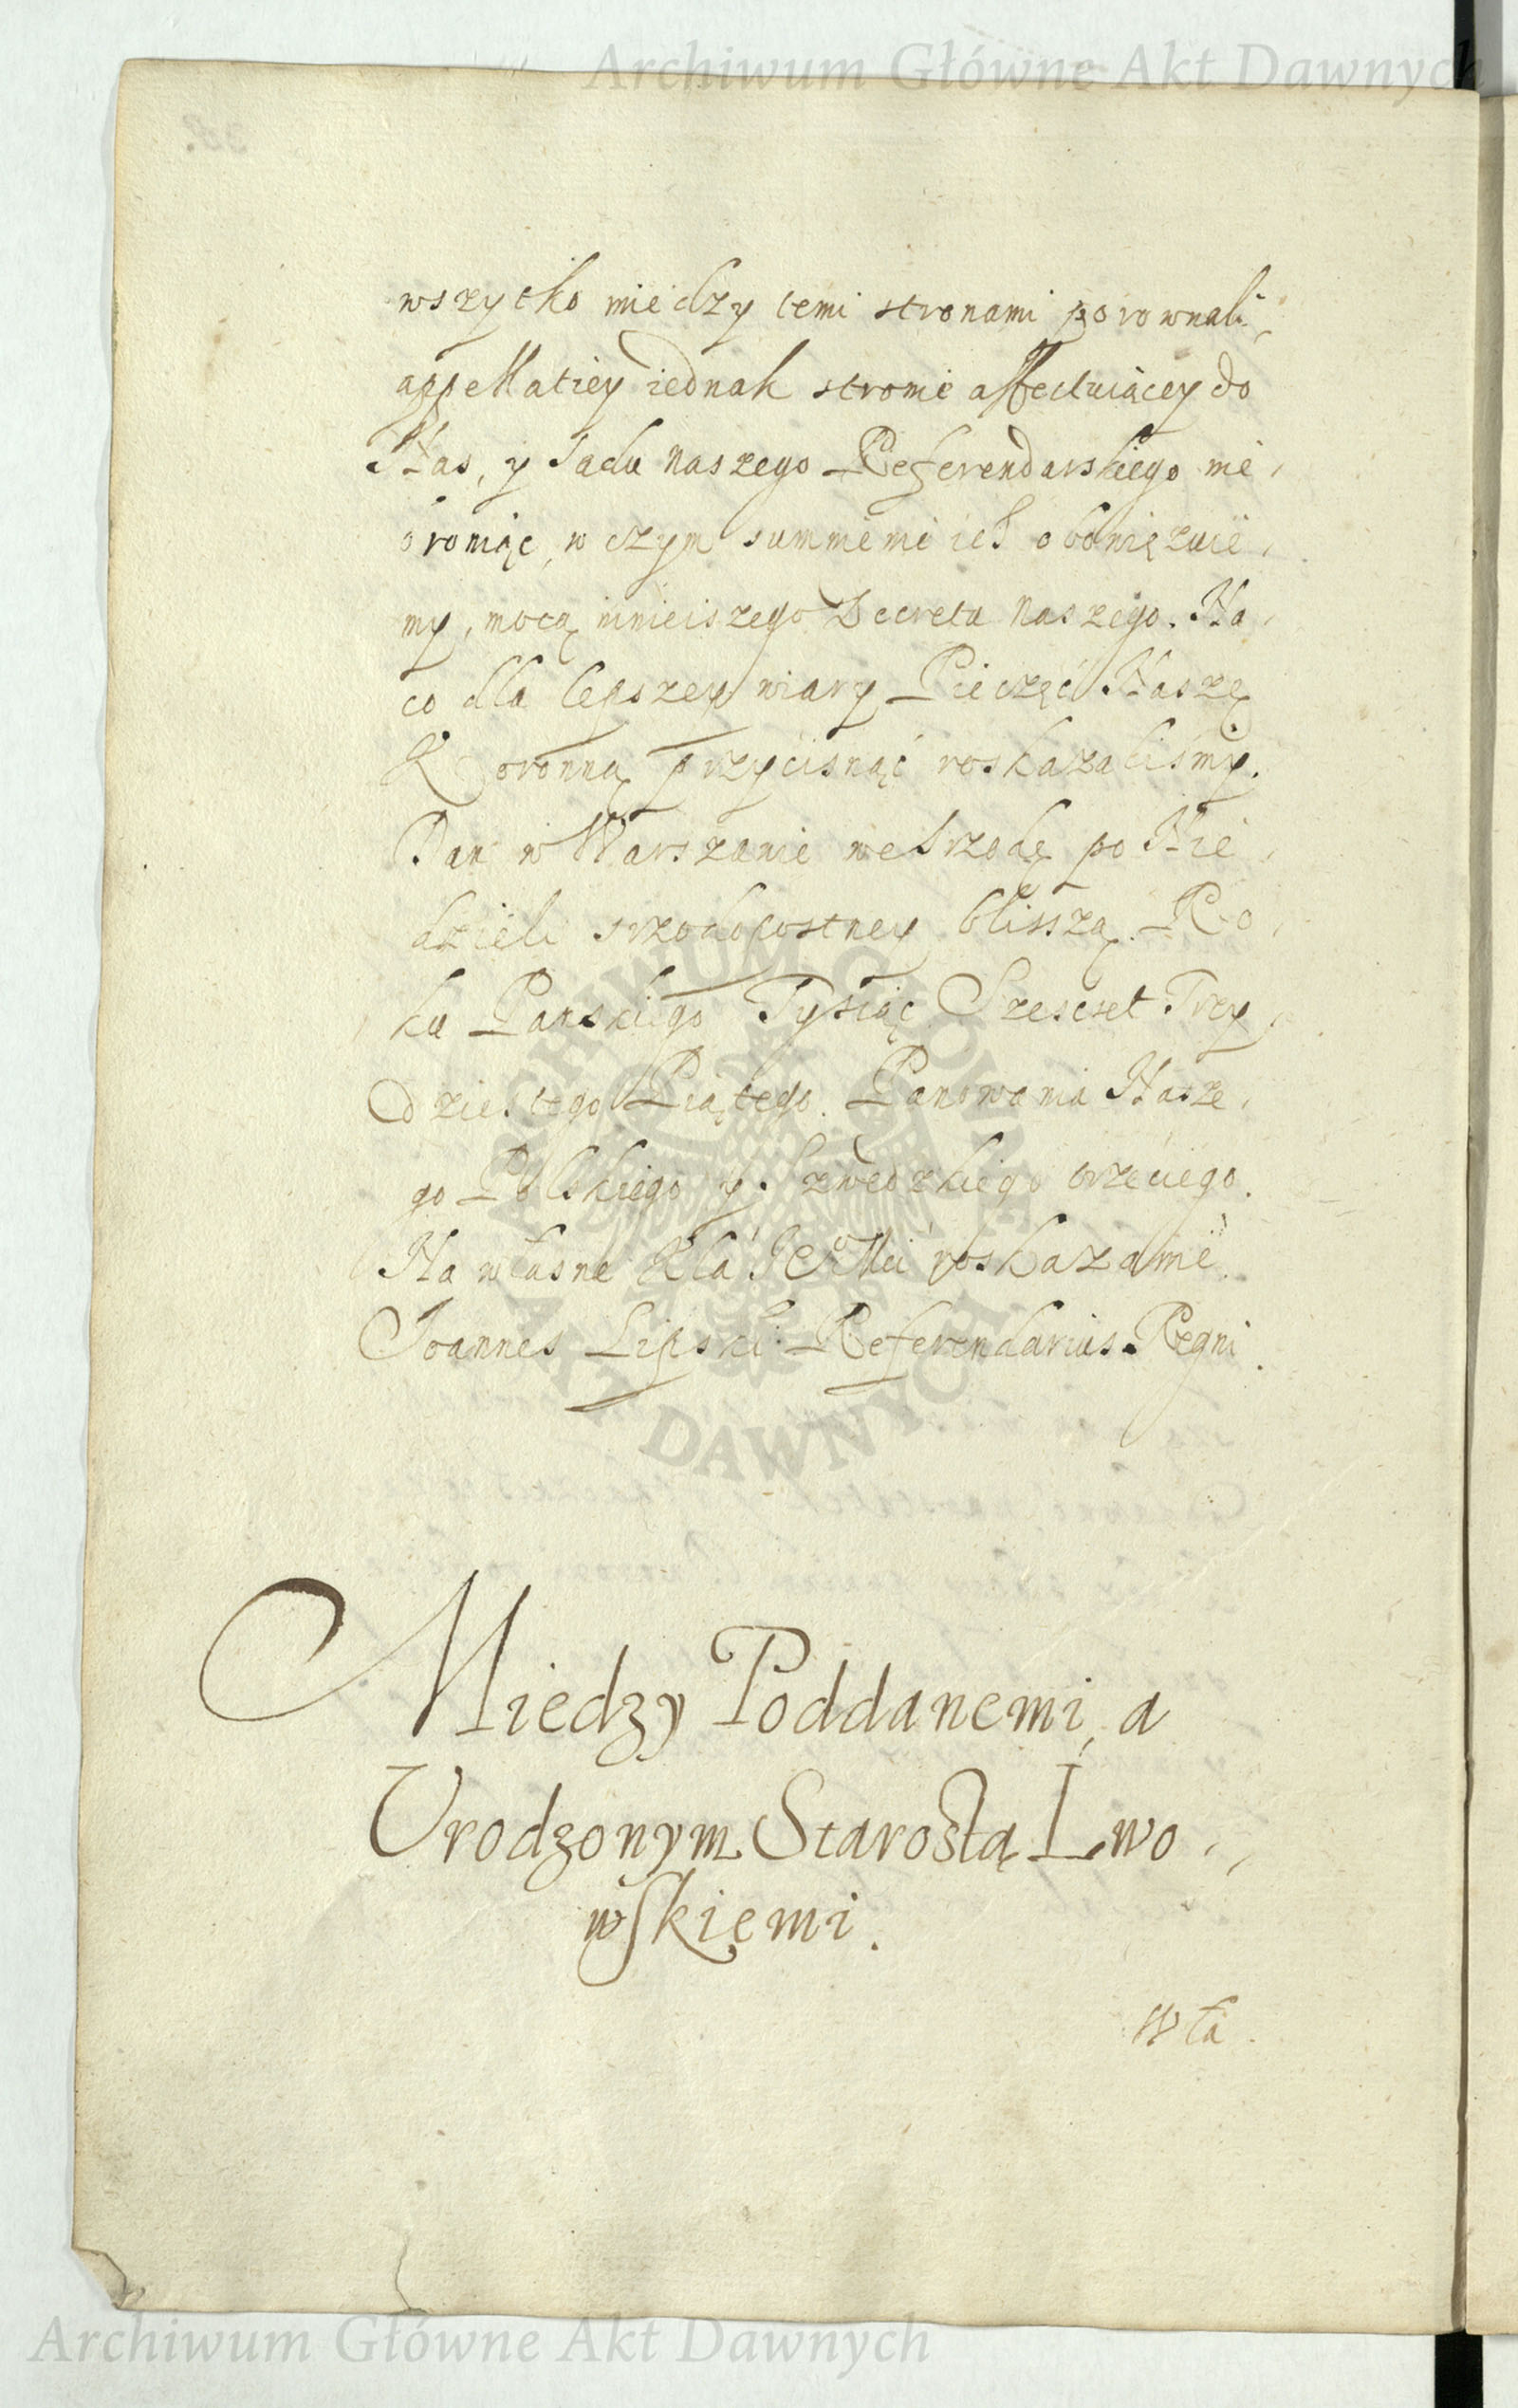 Archiwum Główne Akt Dawnych
wszytko miedzy temi stronami porownali,
appellatiey iednak stronie affectuiącey do
Nas, y Sadu naszego Referendarskiego nie,
broniąc, w czym summieniè ich obowięzuie,
my, mocą ninieiszego Decretu naszego. Na,
co dla lepszey wiary Pieczęć Naszę
Koronną przycisnąć roskazaliśmy.
Dan w Warszawie we Srzodę po Nie,
dzieli srzodopostney bliszszą. Ro,
ku Panskiego Tysiąc Szescset Trzy,
dziestego Piątego. Panowania Nasze,
go Polskiego y Szwedzkiego trzeciego.
Na własne Kla JeoMci roskazanie.
Joannes Lipski Referendarius Regni.
ARCHIWUM GŁÓWNE
AKT DAWNYCH
Miedzy Poddanemi, a
Urodzonym Starostą Lwo,,
wskiemi.
Wła.
Archiwum Główne Akt Dawnych